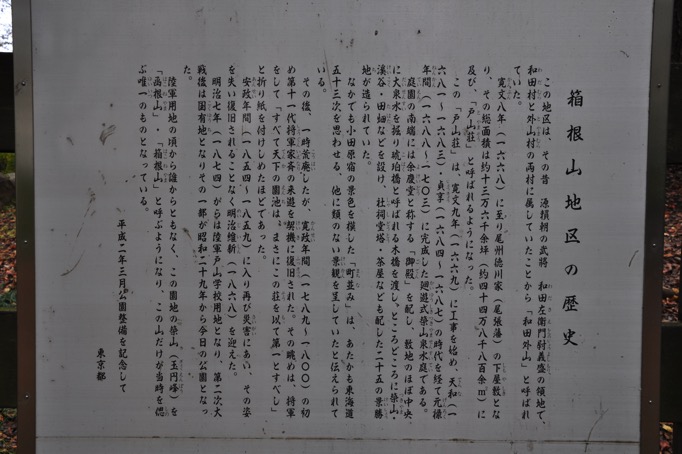 箱根山地区の歴史
この地区は、その昔 源頼朝の武将 和田左衛門尉義盛の領地で、
和田村と外山村の両村に属していたことから「和田外山」と呼ばれ
ていた。
寛文八年(一六六八)に至り尾州徳川家(尾張藩)の下屋敷とな
り、その総面積は約十三万六千余坪(約四十四万八千八百余㎡)に
及び、「戸山荘」と呼ばれるようになった。
この「戸山荘」は、寛文九年(一六六九)に工事を始め、天和(一
六八一〜一六八三)・貞享(一六八四〜一六八七)の時代を経て元禄
年間(一六八八〜一七〇三)に完成した廻遊式築山泉水庭である。
庭園の南端には余慶堂と称する「御殿」を配し、敷地のほぼ中央
に大泉水を掘り琥珀橋と呼ばれる木橋を渡し、ところどころに築山・
渓谷・田畑などを設け、社祠堂塔・茶屋なども配した二十五の景勝
地が造られていた。
なかでも小田原宿の景色を模した「町並み」は、あたかも東海道
五十三次を思わせる、他に類のない景観を呈していたと伝えられて
いる。
その後、一時荒廃したが、寛政年間(一七八九〜一八〇〇)の初
め第十一代将軍家斉の来遊を契機に復旧された。その眺めは、将軍
をして「すべて天下の園池は、まさにこの荘を以て第一とすべし」
と折り紙を付けしめたほどであった。
安政年間(一八五四〜一八五九)に入り再び災害にあい、その姿
を失い復旧されることなく明治維新(一八六八)を迎えた。
明治七年(一八七四)がらは陸軍戸山学校用地となり、第二次大
戦後は国有地となりその一部が昭和二十九年から今日の公園となっ
た。
陸軍用地の頃から誰からともなく、この園地の築山(玉円峰)を
「函根山」・「箱根山」と呼ぶようになり、この山だけが当時を偲
ぶ唯一のものとなっている。
平成二年三月公園整備を記念して
東京都